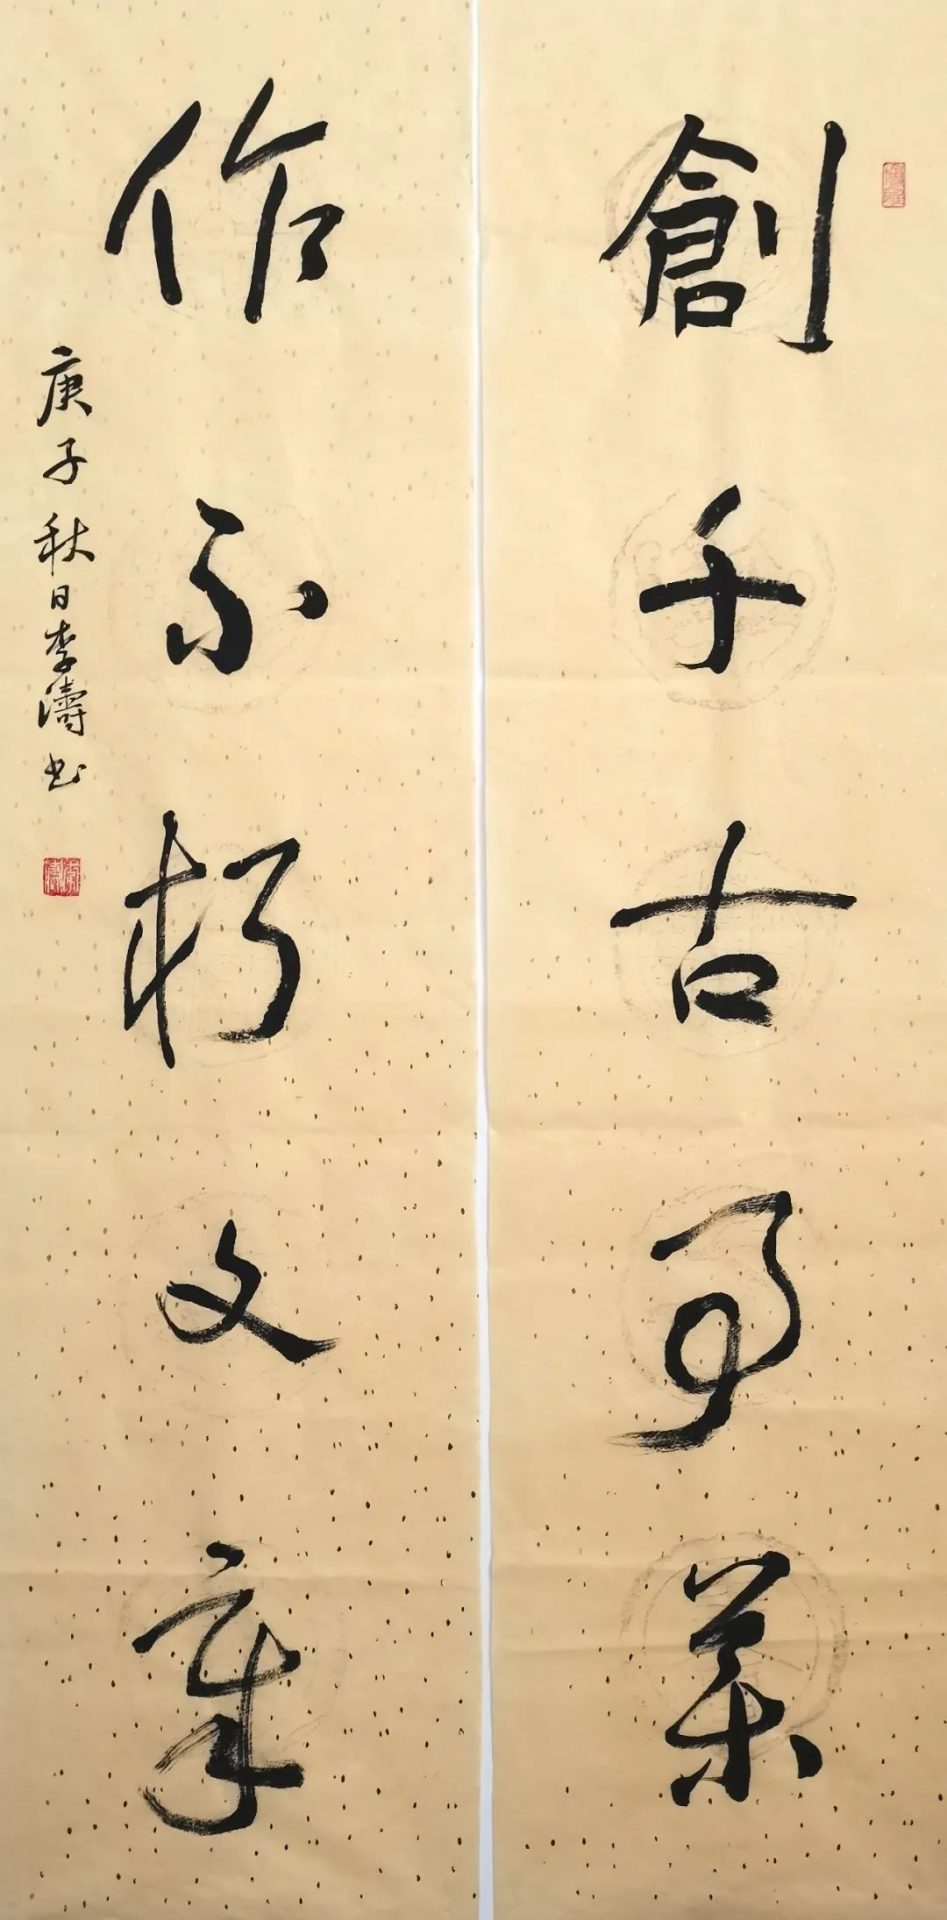 創千古事業
作不朽文章
庚子秋日李濤书